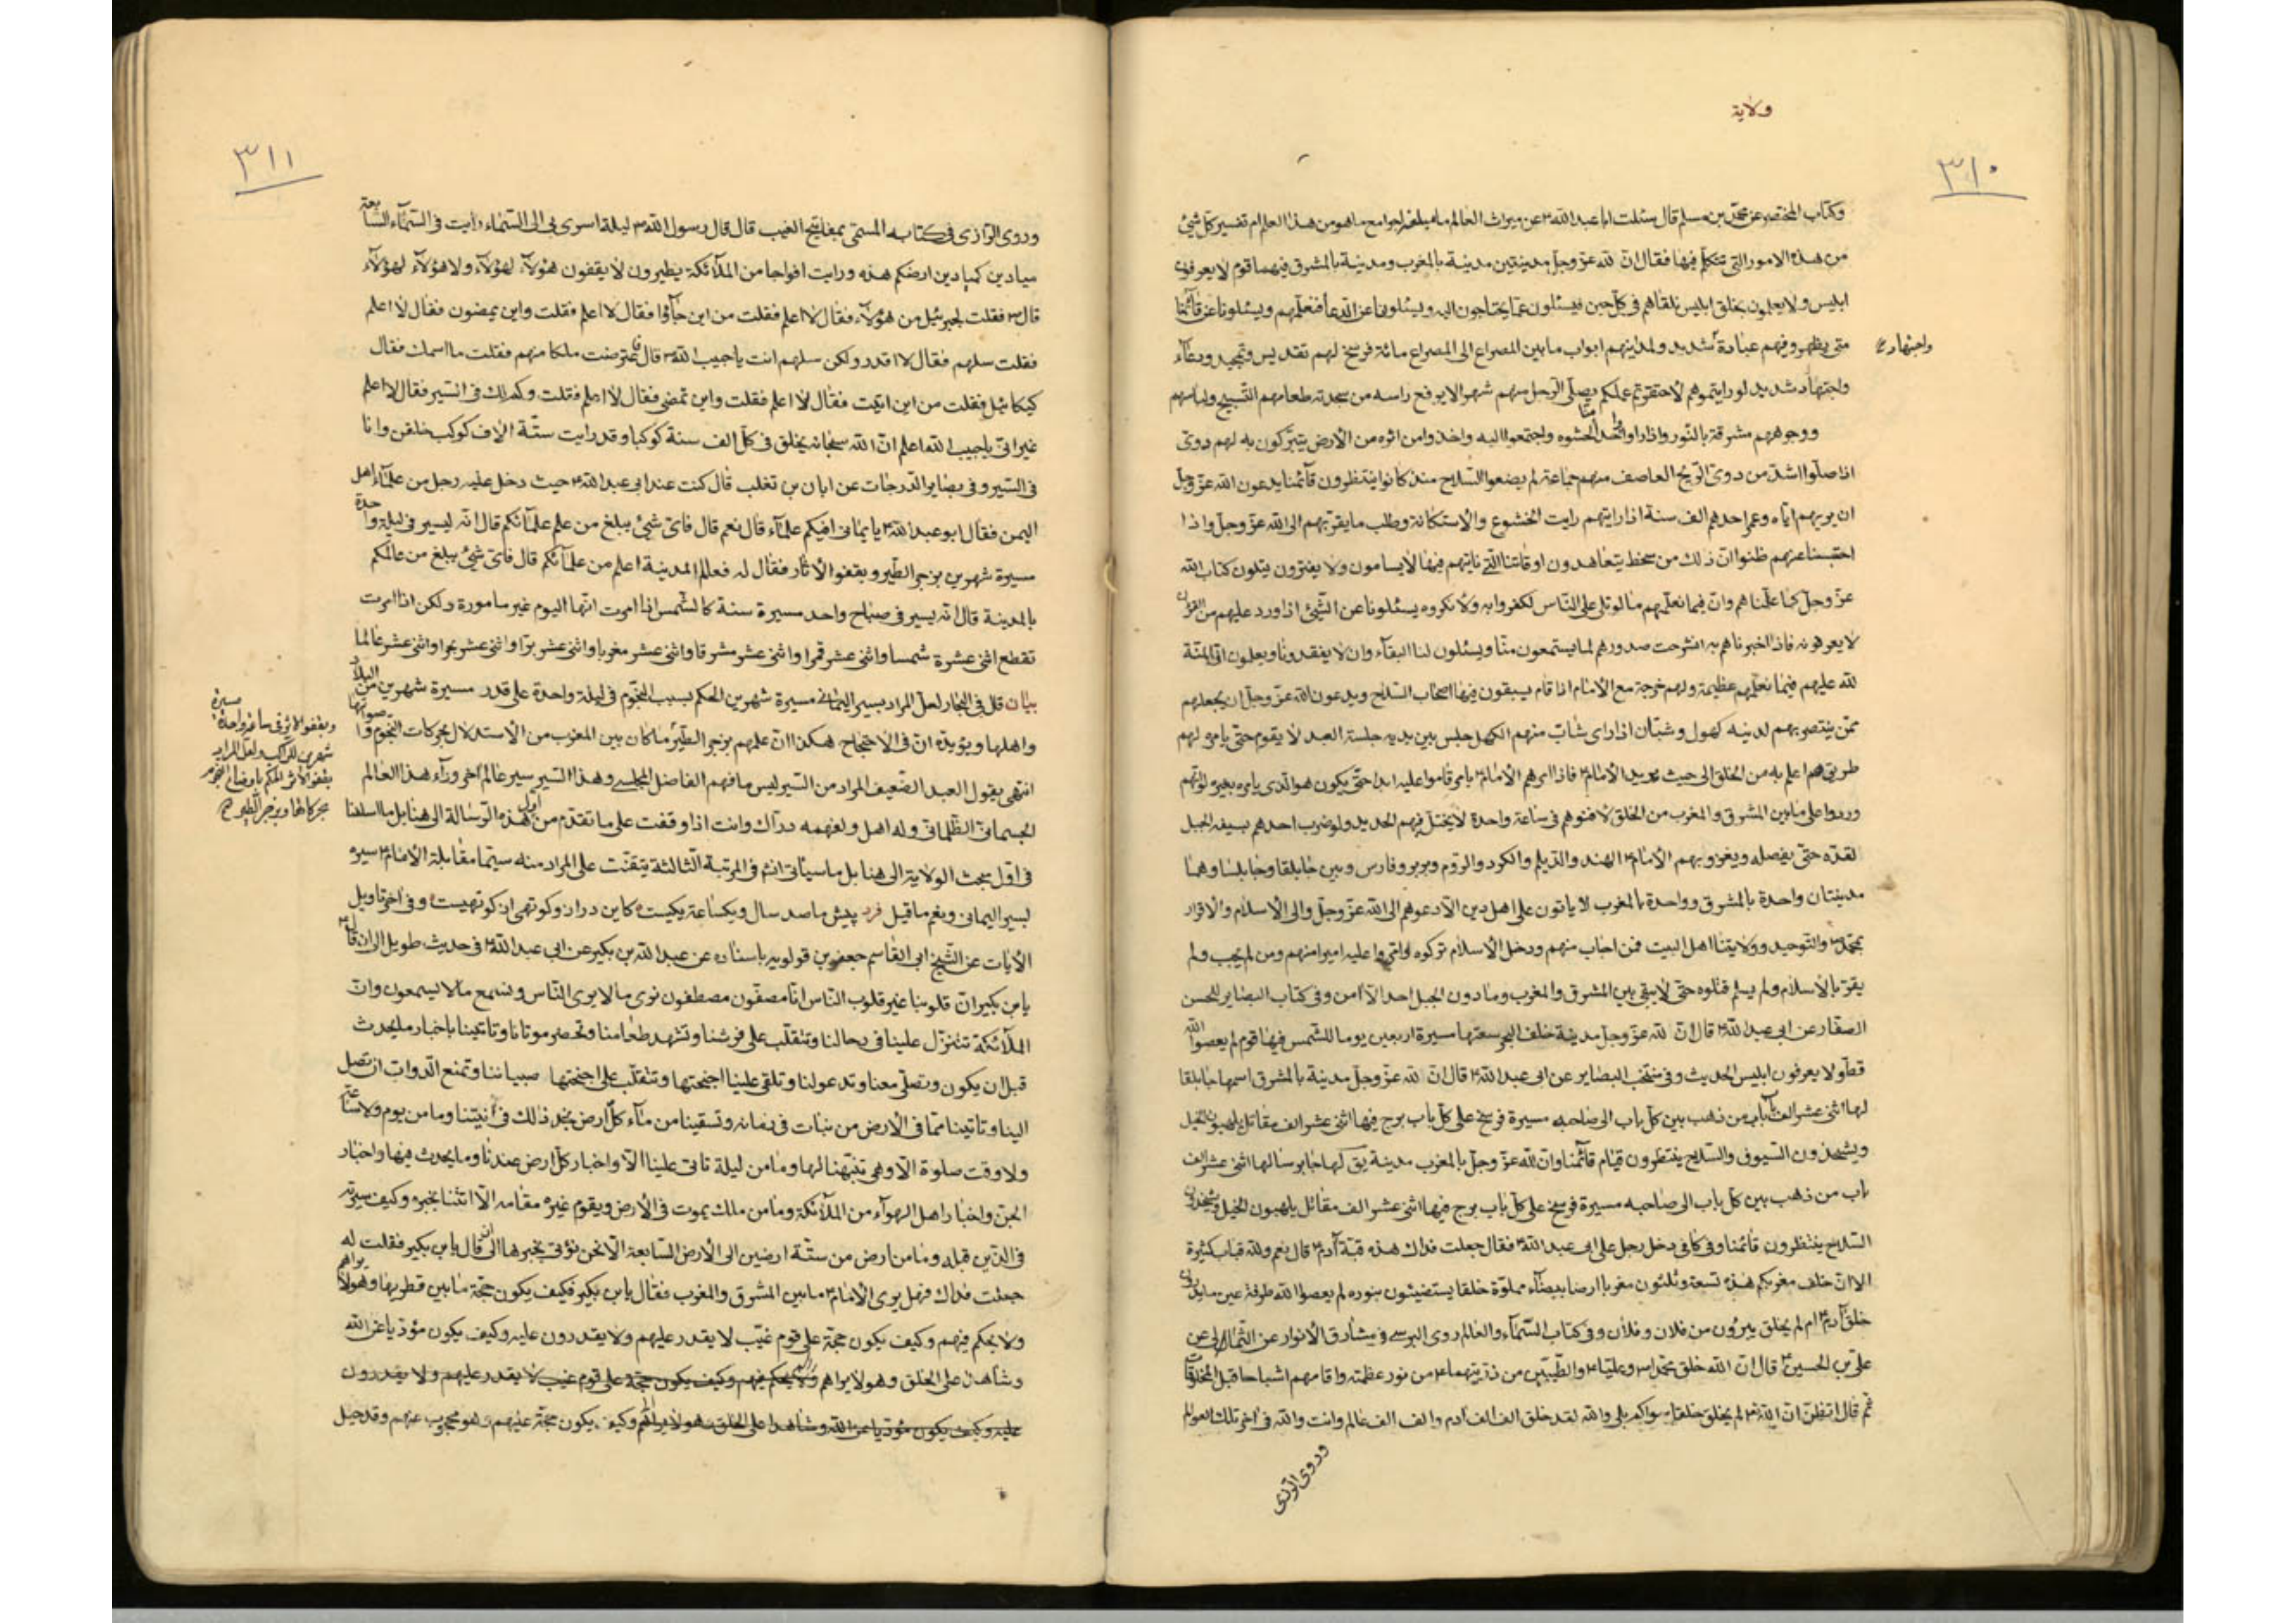 ولاية
٣١٠
وكتاب المختصر عن محمد بن مسلم قال سئلت ابا عبد الله ع عن ميراث العالم ما يبلغه اجوامع ما هو من هذا العلم ام تفسير كل شئ
من هذه الامور التى نتكلم فيها فقال ان لله عز وجل مدينتين مدينة بالمغرب ومدينة بالمشرق فيهما قوم لا يعرفون
ابليس ولا يعلمون بخلق ابليس نلقاهم فى كل حين فيسئلون عما يحتاجون اليه ويسئلونا عن الدعا فنعلمهم ويسئلونا عن قائمنا
متى يظهر وفيهم عبادة شديد ولمدينتهم ابواب ما بين المصراع الى المصراع مائة فرسخ لهم تقديس وتمجيد ودعاء
واجتهاد
واجتهاد شديد لو رايتموهم لاحتقرتم عملكم يصلى الرجل منهم شهرا لا يرفع راسه من سجدته طعامهم التسبيح ولباسهم
ووجوههم مشرقة بالنور واذا راوا منا واحدا احتشوه واجتمعوا اليه واخذوا من اثره من الارض يتبركون به لهم دوى
اذا صلوا اشد من دوى الريح العاصف منهم جماعة لم يضعوا السلاح منذ كانوا ينتظرون قائمنا يدعون الله عز وجل
ان يريهم اياه وعمر احدهم الف سنة اذا رايتهم رايت الخشوع والاستكانة وطلب ما يقربهم الى الله عز وجل واذا
احتبسنا عنهم ظنوا ان ذلك من سخط يتعاهدون اوقاتنا التى ناتيهم فيها لا يسامون ولا يفترون يتلون كتاب الله
عز وجل كما علمناهم وان فيما نعلمهم ما لو تلى على الناس لكفروا به ولانكروه يسئلونا عن الشئ اذا ورد عليهم من القران
لا يعرفونه فاذا اخبرناهم به انشرحت صدورهم لما يستمعون منا ويسئلون لنا البقاء وان لا يفقدونا ويعلمون ان المنة
لله عليهم فيما نعلمهم عظيمة ولهم خرجة مع الامام اذا قام يسبقون فيها اصحاب السلاح ويدعون الله عز وجل ان يجعلهم
ممن ينتصر بهم لدينه كهول وشبان اذا راى شاب منهم الكهل جلس بين يديه جلسة العبد لا يقوم حتى يامره لهم
طريق هم اعلم به من الخلق الى حيث يريد الامام ع فاذا امرهم الامام ع بامر قاموا عليه ابدا حتى يكون هو الذى يامره بغيره لو انهم
وردوا على ما بين المشرق والمغرب من الخلق لافنوهم فى ساعة واحدة لا يختل فيهم الحديد ولو ضرب احدهم بسيفه الجبل
لقده حتى يفصله ويغزو بهم الامام ع الهند والديلم والكرد والروم وبربر وفارس وبين جابلقا وجابلسا وهما
مدينتان واحدة بالمشرق وواحدة بالمغرب لا ياتون على اهل دين الا دعوهم الى الله عز وجل والى الاسلام والاقرار
بمحمد ص والتوحيد وولايتنا اهل البيت فمن اجاب منهم ودخل الاسلام تركوه وامروا عليه اميرا منهم ومن لم يجب ولم
يقر بالاسلام ولم يسلم قتلوه حتى لا يبقى بين المشرق والمغرب وما دون الجبل احد الا امن وفى كتاب البصاير للحسن
الصفار عن ابى عبد الله ع قال ان لله عز وجل مدينة خلف البحر سعتها مسيرة اربعين يوما للشمس فيها قوم لم يعصوا الله
قط ولا يعرفون ابليس الحديث وفى منتخب البصاير عن ابى عبد الله ع قال ان لله عز وجل مدينة بالمشرق اسمها جابلقا
لها اثنى عشر الف باب من ذهب بين كل باب الى صاحبه مسيرة فرسخ على كل باب برج فيها اثنى عشر الف مقاتل يلهبون الخيل
ويشحذون السيوف والسلاح ينتظرون قيام قائمنا وان لله عز وجل بالمغرب مدينة يق لها جابرسا لها اثنى عشر الف
باب من ذهب بين كل باب الى صاحبه مسيرة فرسخ على كل باب برج فيها اثنى عشر الف مقاتل يلهبون الخيل ويشحذون
السلاح ينتظرون قائمنا وفى كافى دخل رجل على ابى عبد الله ع فقال جعلت فداك هذه قبة ادم ع قال نعم ولله قباب كثيرة
الا ان خلف مغربكم هذه تسعة وثلثون مغربا ارضا بيضاء مملوة خلقا يستضيئون بنوره لم يعصوا الله طرفة عين ما يدرون
خلق آدم ع ام لم يخلق يبرؤن من فلان وفلان وفى كتاب السماء والعالم روى البرسى فى مشارق الانوار عن الثمالى عن
على بن الحسين ع قال ان الله خلق محمدا ص وعليا ع والطيبين من ذريتهما ع من نور عظمته واقامهم اشباحا قبل المخلوقات
ثم قال اتظن ان الله لم يخلق خلقا سواكم بلى والله لقد خلق الف الف ادم والف الف عالم وانت والله فى اخر تلك العوالم
وروى الرازى
٣١١
وروى الرازى فى كتابه المسمى بمفاتيح الغيب قال قال رسول الله ص ليلة اسرى بى الى السماء رايت فى السماء السابعة
ميادين كميادين ارضكم هذه ورايت افواجا من الملائكة يطيرون لا يقفون هؤلاء لهؤلاء ولا هؤلاء لهؤلاء
قال ص فقلت لجبرئيل من هؤلاء فقال لا اعلم فقلت من اين جاؤا فقال لا اعلم فقلت واين يمضون فقال لا اعلم
فقلت سلهم فقال لا اقدر ولكن سلهم انت يا حبيب الله ص قال فاعترضت ملكا منهم فقلت ما اسمك فقال
كيكائيل فقلت من اين اتيت فقال لا اعلم فقلت واين تمضى فقال لا اعلم فقلت وكم لك فى السير فقال لا اعلم
غير انى يا حبيب الله اعلم ان الله سبحانه يخلق فى كل الف سنة كوكبا وقد رايت ستة الاف كوكب خلقن وانا
فى السير وفى بصاير الدرجات عن ابان بن تغلب قال كنت عند ابى عبد الله ع حيث دخل عليه رجل من علماء اهل
اليمن فقال ابو عبد الله ع يا يمانى افيكم علماء قال نعم قال فاى شئ يبلغ من علم علمائكم قال انه ليسير فى ليلة واحدة
مسيرة شهرين يزجر الطير ويقفو الاثار فقال له فعالم المدينة اعلم من علمائكم قال فاى شئ يبلغ من عالمكم
بالمدينة قال انه يسير فى صباح واحد مسيرة سنة كالشمس اذا امرت انها اليوم غير مامورة ولكن اذا امرت
تقطع اثنى عشرة شمسا واثنى عشر قمرا واثنى عشر مشرقا واثنى عشر مغربا واثنى عشر برا واثنى عشر بحرا واثنى عشر عالما
بيان قال فى البحار لعل المراد بسير اليمانى مسيرة شهرين الحكم بسبب النجوم فى ليلة واحدة على قدر مسيرة شهرين من البلاد
واهلها ويؤيده ان فى الاحتجاج هكذا ان علمهم بزجر الطير ما كان بين المغرب من الاستدلال بحركات النجوم واصواتها
ويقفو الاثر فى ساعة واحدة مسيرة
شهرين للراكب ولعل المراد
بقفو الاثر الحكم باوضاع النجوم
بحركاتها وبزجر الطير
انتهى يقول العبد الضعيف المراد من السير ليس ما فهم الفاضل المجلسى وهذا السير سير عالم آخر وراء هذا العالم
الجسمانى الظلمانى وله اهل ولفهمه دراك وانت اذا وقفت على ما تقدم من اول هذه الرسالة الى هنا بل ما اسلفنا
فى اول مبحث الولاية الى هنا بل ما سياتى انش فى المرتبة الثالثة يتقنت على المراد منه سيما مقابلة الامام ع سيره
لسير اليمانى ونعم ما قيل فرد پيش ما صد سال ويكساعة يكيست كاين دراز وكوتهى از كوتهيست وفى اخر تاويل
الايات عن الشيخ ابى القاسم جعفر بن قولويه باسناده عن عبد الله بن بكير عن ابى عبد الله ع فى حديث طويل الى ان قال
يابن بكير ان قلوبنا غير قلوب الناس انا مصفون مصطفون نرى ما لا يرى الناس ونسمع ما لا يسمعون وان
الملائكة تتنزل علينا فى رحالنا وتتقلب على فرشنا وتشهد طعامنا وتحضر موتانا وتاتينا باخبار ما يحدث
قبل ان يكون وتصلى معنا وتدعو لنا وتلقى علينا اجنحتها وتتقلب على اجنحتها صبياننا وتمنع الدواب ان تصل
الينا وتاتينا مما فى الارض من نبات فى زمانه وتسقينا من ماء كل ارض نجد ذلك فى آنيتنا وما من يوم ولا ساعة
ولا وقت صلوة الا وهى تنبهنا لها وما من ليلة تاتى علينا الا واخبار كل ارض عندنا وما يحدث فيها واخبار
الجن واخبار اهل الهواء من الملائكة وما من ملك يموت فى الارض ويقوم غيره مقامه الا اتتنا بخبره وكيف سيرته
فى الذين قبله وما من ارض من ستة ارضين الى الارض السابعة الا نحن نؤتى بخبرها الى ان قال يابن بكير فقلت له
جعلت فداك فهل يرى الامام ع ما بين المشرق والمغرب فقال يابن بكير فكيف يكون حجة ما بين قطريها وهو لا يراهم
ولا يحكم فيهم وكيف يكون حجة على قوم غيب لا يقدر عليهم ولا يقدرون عليه وكيف يكون مؤديا عن الله
وشاهدا على الخلق وهو لا يراهم ولا يحكم فيهم وكيف يكون حجة على قوم غيب لا يقدر عليهم ولا يقدرون
عليه وكيف يكون مؤديا عن الله وشاهدا على الخلق وهو لا يراهم وكيف يكون حجة عليهم وهو محجوب عنهم وقد حيل